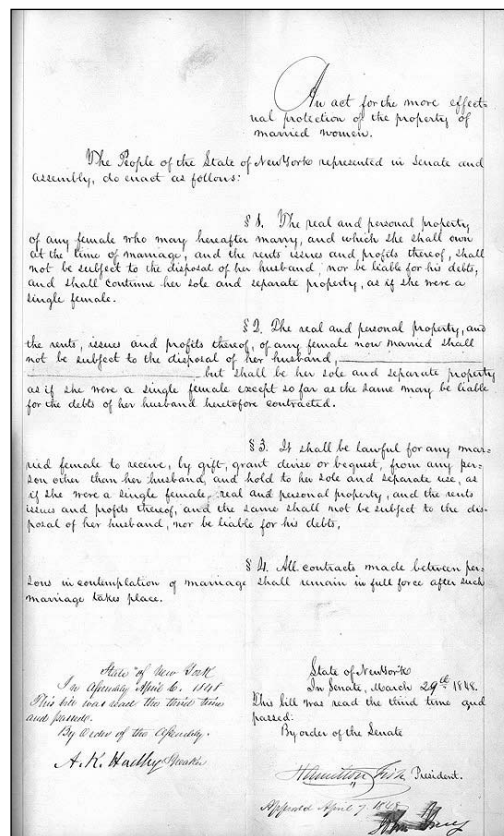 An act for the more effect-
ual protection of the property of
married women.
The People of the State of New York represented in Senate and
assembly, do enact as follows:
§ 1. The real and personal property
of any female who may hereafter marry, and which she shall own
at the time of marriage, and the rents issues and profits thereof, shall
not be subject to the disposal of her husband, nor be liable for his debts,
and shall continue her sole and separate property, as if she were a
single female.
§ 2. The real and personal property, and
the rents, issues and profits thereof, of any female now married shall
not be subject to the disposal of her husband,
but shall be her sole and separate property
as if she were a single female except so far as the same may be liable
for the debts of her husband heretofore contracted.
§ 3. It shall be lawful for any mar=
ried female to receive, by gift, grant devise or bequest, from any per=
son other than her husband, and hold to her sole and separate use, as
if she were a single female, real and personal property, and the rents
issues and profits thereof, and the same shall not be subject to the dis=
posal of her husband, nor be liable for his debts.
§ 4. All contracts made between per=
sons in contemplation of marriage shall remain in full force after such
marriage takes place.
State of New York
In Assembly April 6. 1848
This bill was read the third time
and passed.
By Order of the Assembly.
A. K. Hadley Speaker
State of New York
In Senate, March 29th 1848.
This bill was read the third time and
passed:
By order of the Senate
Hamilton Fish President.
Approved April 7. 1848
John Young